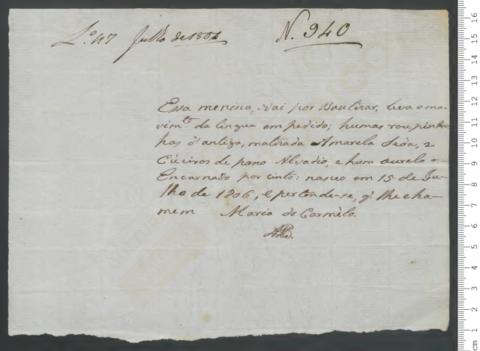 L.º 47 Julho de 1806
N. 940
Esta menina, vai por Bautizar, leva o mo
vim.to da lingua em pedido; humas roupinhas
de antiga, matizada Amarela Seda, 2
Cueiros de pano Alvadio, e hum ourelo
Encarnado por cinto: nasceo em 15 de Ju-
lho de 1806, e pertende-se, q' lhe cha-
mem Maria do Carmelo.